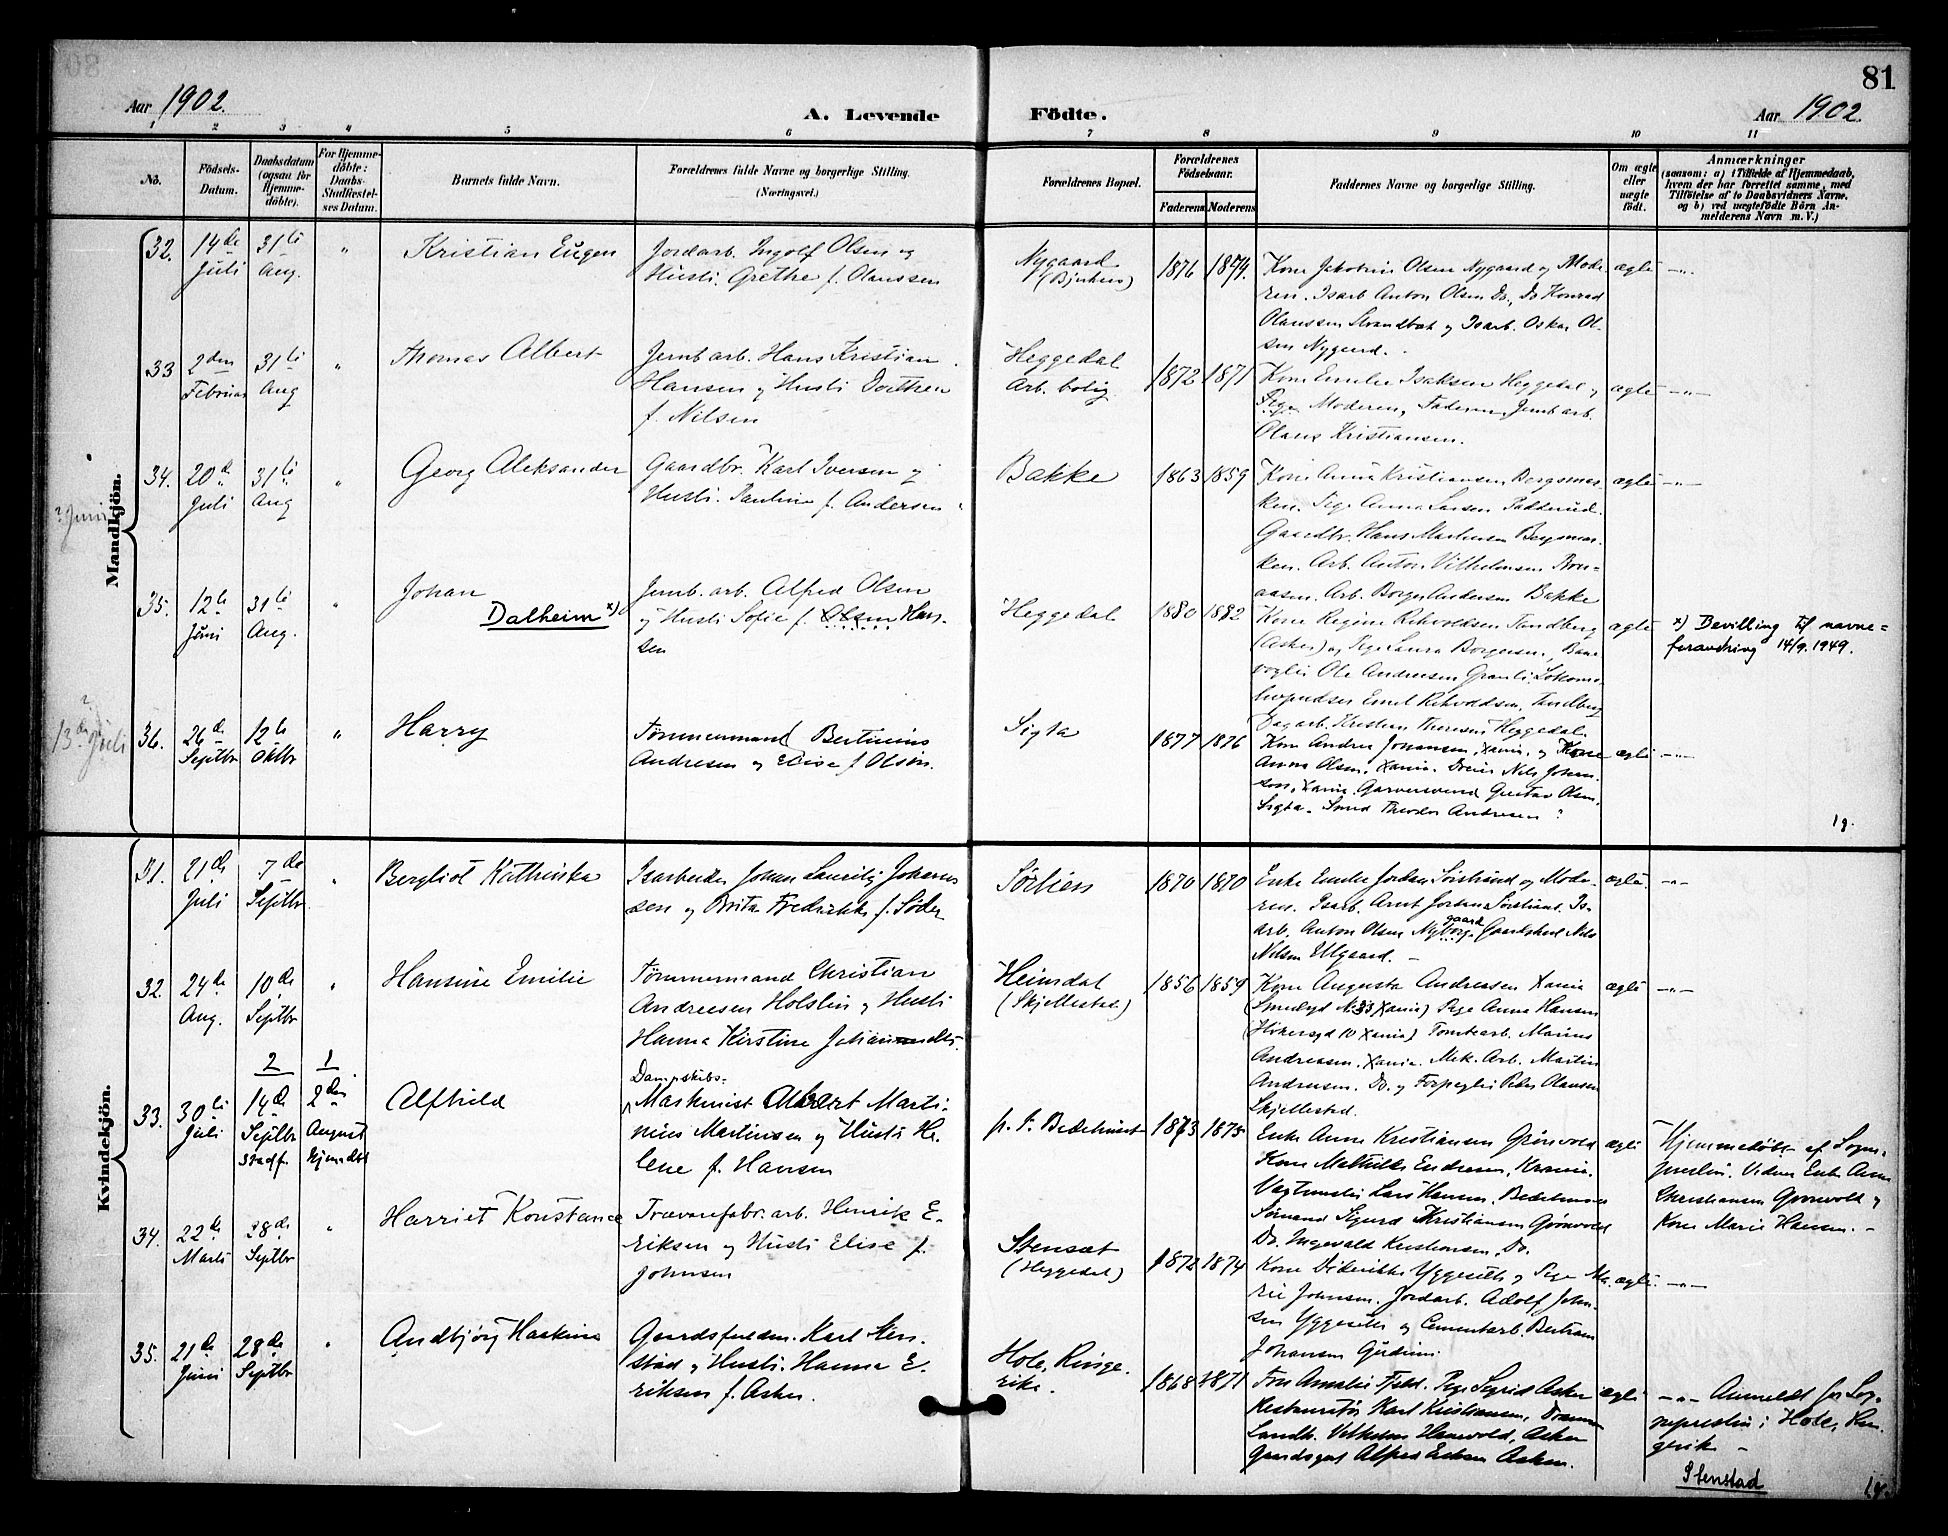 81
Aar 1902.
A. Levende Födte.
Aar 1902.
1 2 3 4 5 6 7 8 9 10 11
No.
Födsels-
Datum.
Daabsdatum
(ogsaa for
Hjemme-
döbte).
For Hjemme-
döbte:
Daabs-
Stadfæstel-
ses Datum.
Barnets fulde Navn.
Forældrenes fulde Navne og borgerlige Stilling.
(Næringsvei.)
Forældrenes Bopæl.
Forældrenes
Födselsaar.
Faderens Moderens
Faddernes Navne og borgerlige Stilling.
Om ægte
eller
uægte
födt.
Anmærkninger
(saasom: a) i Tilfælde af Hjemmedaab,
hvem der har forrettet samme, med
Tilföielse af to Daabsvidners Navne.
og b) ved uægtefödte Börn An-
melderens Navn m. V.)
Mandkjön.
32.
14de
Juli
31te
Aug.
"
Kristian Eugen
Jordarb. Ingolf Olsen og
Hustr. Grethe f. Olaussen
Nygaard
1876
1879.
Kone Jakobine Olsen Nygaard og Mode-
ren. Isarb Anton Olsen Do., Do Konrad
Olaussen Strandbæk og Isarb. Oskar Ol-
sen Nygaard.
ægte
33
2den
Februar
31te
Aug
"
Thomas Albert
Jernb arb. Hans Kristian
Hansen og Hustr. Dorthea
f. Nilsen
Heggedal
Arb. bolig
1872
1871
Kone Emilie Isaksen Heggedal og
Pige Moderen, Faderen, Jernb arb.
Olaus Kristiansen.
ægte
34.
20de
Juli
31te
Aug
"
Georg Aleksander
Gaardbr. Karl Iversen og
Hustr. Pauline f. Andersen
Bakke
1863
1859
Kone Anna Kristiansen Bergsmar-
ken. Pige Anna Larsen
Gaardbr. Hans Bergsmar-
ken. Arb. Anton Vilhelmsen
Arb. Borger Andersen Bakke
ægte
? Juni
35.
12te
Juni
31te
Aug.
"
Johan
Dalheim x)
Jernb. arb. Alfred Olsen
og Hustr. Sofie f. Olsen Han-
sen
Heggedal
1880
1882
Kone Regine Rihvoldsen Sandberg
(Asker) og Pige Laura Borgersen,
Ole Andresen
Emil Rihvoldsen, Sandberg
Heggedal
ægte
x) Bevilling til navne=
forandring 14/9. 1949.
?
13de Juli
36.
26de
Septbr
12te
Oktbr
"
Harry
Tømmermand Bertinius
Andresen og Elise f Olsen.
Sigta
1877
1876
Kone Andrea Johansen, Xania. og Kone
Anna Olsen, Xania. Dreier Nils Johan-
sen, Xania. Garversvend Gustav Olsen,
Sigta. Smed Theodor Andresen
ægte
1 g.
Kvindekjön.
31.
21de
Juli
7de
Septbr
"
Bergliot Kathinka
Isarbeider Johan Lauritz Johannes-
sen og Brita Fredrikke f. Söder
1870
1870
Enke Emilie Jordan Sørstrand og Mode-
ren. Isarb. Arnt Jordan Sørstrand. Is-
arb. Anton Olsen Nyborg gaard Nils
Nilsen Ulgaard.
ægte
32.
24de
Aug.
10de
Septbr
"
Hansine Emilie
Tømmermand Christian
Andreesen Holslin og Hustr
Hanna Kirstine Johannesdtr.
Heimdal
(Skjellestad)
1856
1859
Kone Augusta Andresen Xania
Pige Anna Hansen
Tomtearb. Marius
Andresen, Xania. Mek. Arb. Martin
Andresen. Do. og Peder Olausen
Skjellestad.
ægte
33.
30te
Juli
2
14de
Septbr
Stadf.
1
2den
August
Hjemdbt
Alfhild
Dampskibs-
Maskinist Albert Marti-
nius Martinsen og Hustr. He-
lene f. Hansen
p. t. Bedehuset
1873
1875
Enke Anne Kristiansen Grönvold
Kone Mathilde Endresen, Krania.
Lars Hansen, Bedehuset
Sömand Sigurd Kristiansen Grönvold
Do. Ingevald Kristiansen, Do.
ægte
Hjemmedøbt af Sogne-
presten. Vidner Enke Anne
Christiansen Grönvold og
Kone Marie Hansen.
34.
22de
Marts
28de
Septbr
"
Harriet Konstance
Trævarefabr. arb. Henrik E-
riksen og Hustr. Elise f.
Johnsen
Stensæt
(Heggedal)
1872
1874
Kone Yggeseth og Pige Ma-
rie Johnsen, Jordarb. Adolf John-
sen Yggeseth og Cementarb. Bertram
Johansen
ægte
35.
21de
Juni
28de
Septbr
"
Andbjörg Haakine
Gaardsfuldm. Karl Sten-
stad og Hustr. Hanna E-
riksen f. Asker.
Hole, Ringe-
rike.
1868
1871
Fru Amalie Fjeld. Pige Sigrid Asker
Restauratör Karl Kristiansen, Dramm
Landh. Vilhelm Hanevold, Asker
Gaardsgut Alfred Eriksen Asker.
ægte
Anmeldt for Sog-
nepresten i Hole, Rin-
gerike
Stenstad